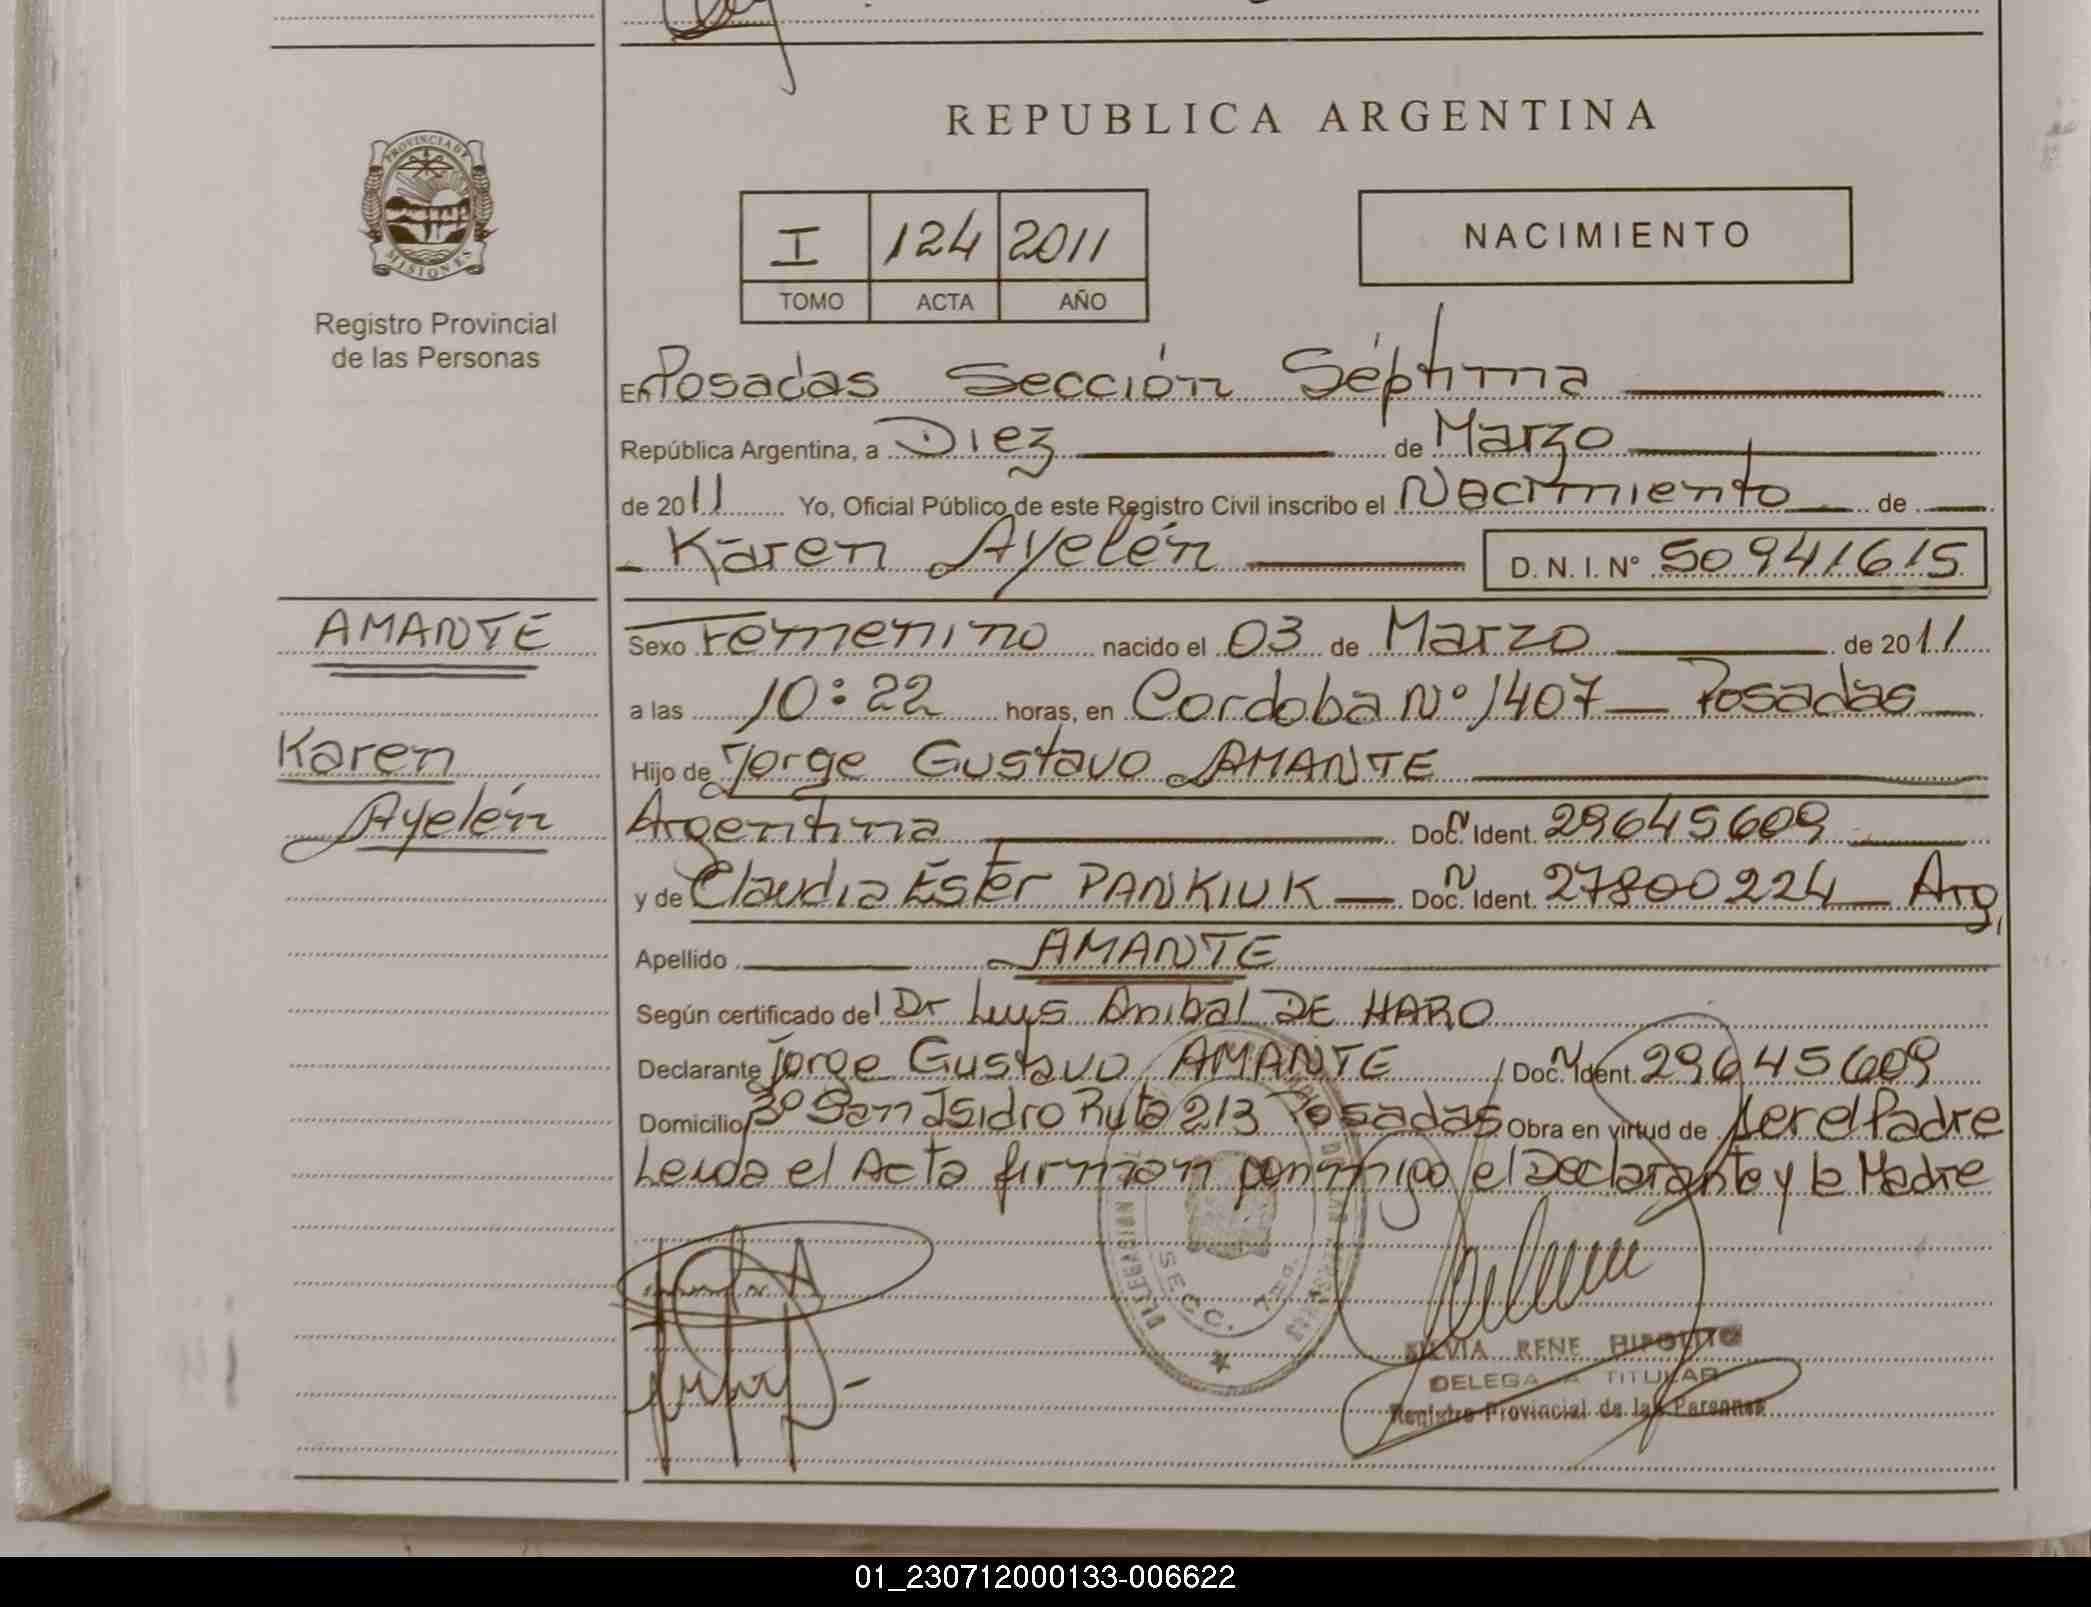 REPUBLICA ARGENTINA
PROVINCIA DE MISIONES
Registro Provincial
de las Personas
I 124 2011
TOMO ACTA AÑO
NACIMIENTO
En Posadas Sección Séptima
República Argentina, a Diez de Marzo
de 2011 Yo, Oficial Público de este Registro Civil inscribo el Nacimiento de
Karen Ayelén D. N. I. Nº 50941615
AMANTE
Karen
Ayelén
Sexo Femenino nacido el 03 de Marzo de 2011
a las 10:22 horas, en Cordoba Nº 1407 — Posadas
Hijo de Jorge Gustavo AMANTE
Argentina Doc. Ident. 29645609
y de Claudia Ester PANKIUK — Doc. Ident. 27800224 — Arg.
Apellido AMANTE
Según certificado del Dr Luys Anibal DE HARO
Declarante Jorge Gustavo AMANTE Doc. Ident. 29645609
Domicilio Bº San Isidro Ruta 213 Posadas Obra en virtud de ser el Padre
Leida el Acta firman conmigo el Declarante y la Madre
SECC. 7ma.
SILVIA RENE HIPOLITO
DELEGADA TITULAR
Registro Provincial de las Personas
01_230712000133-006622